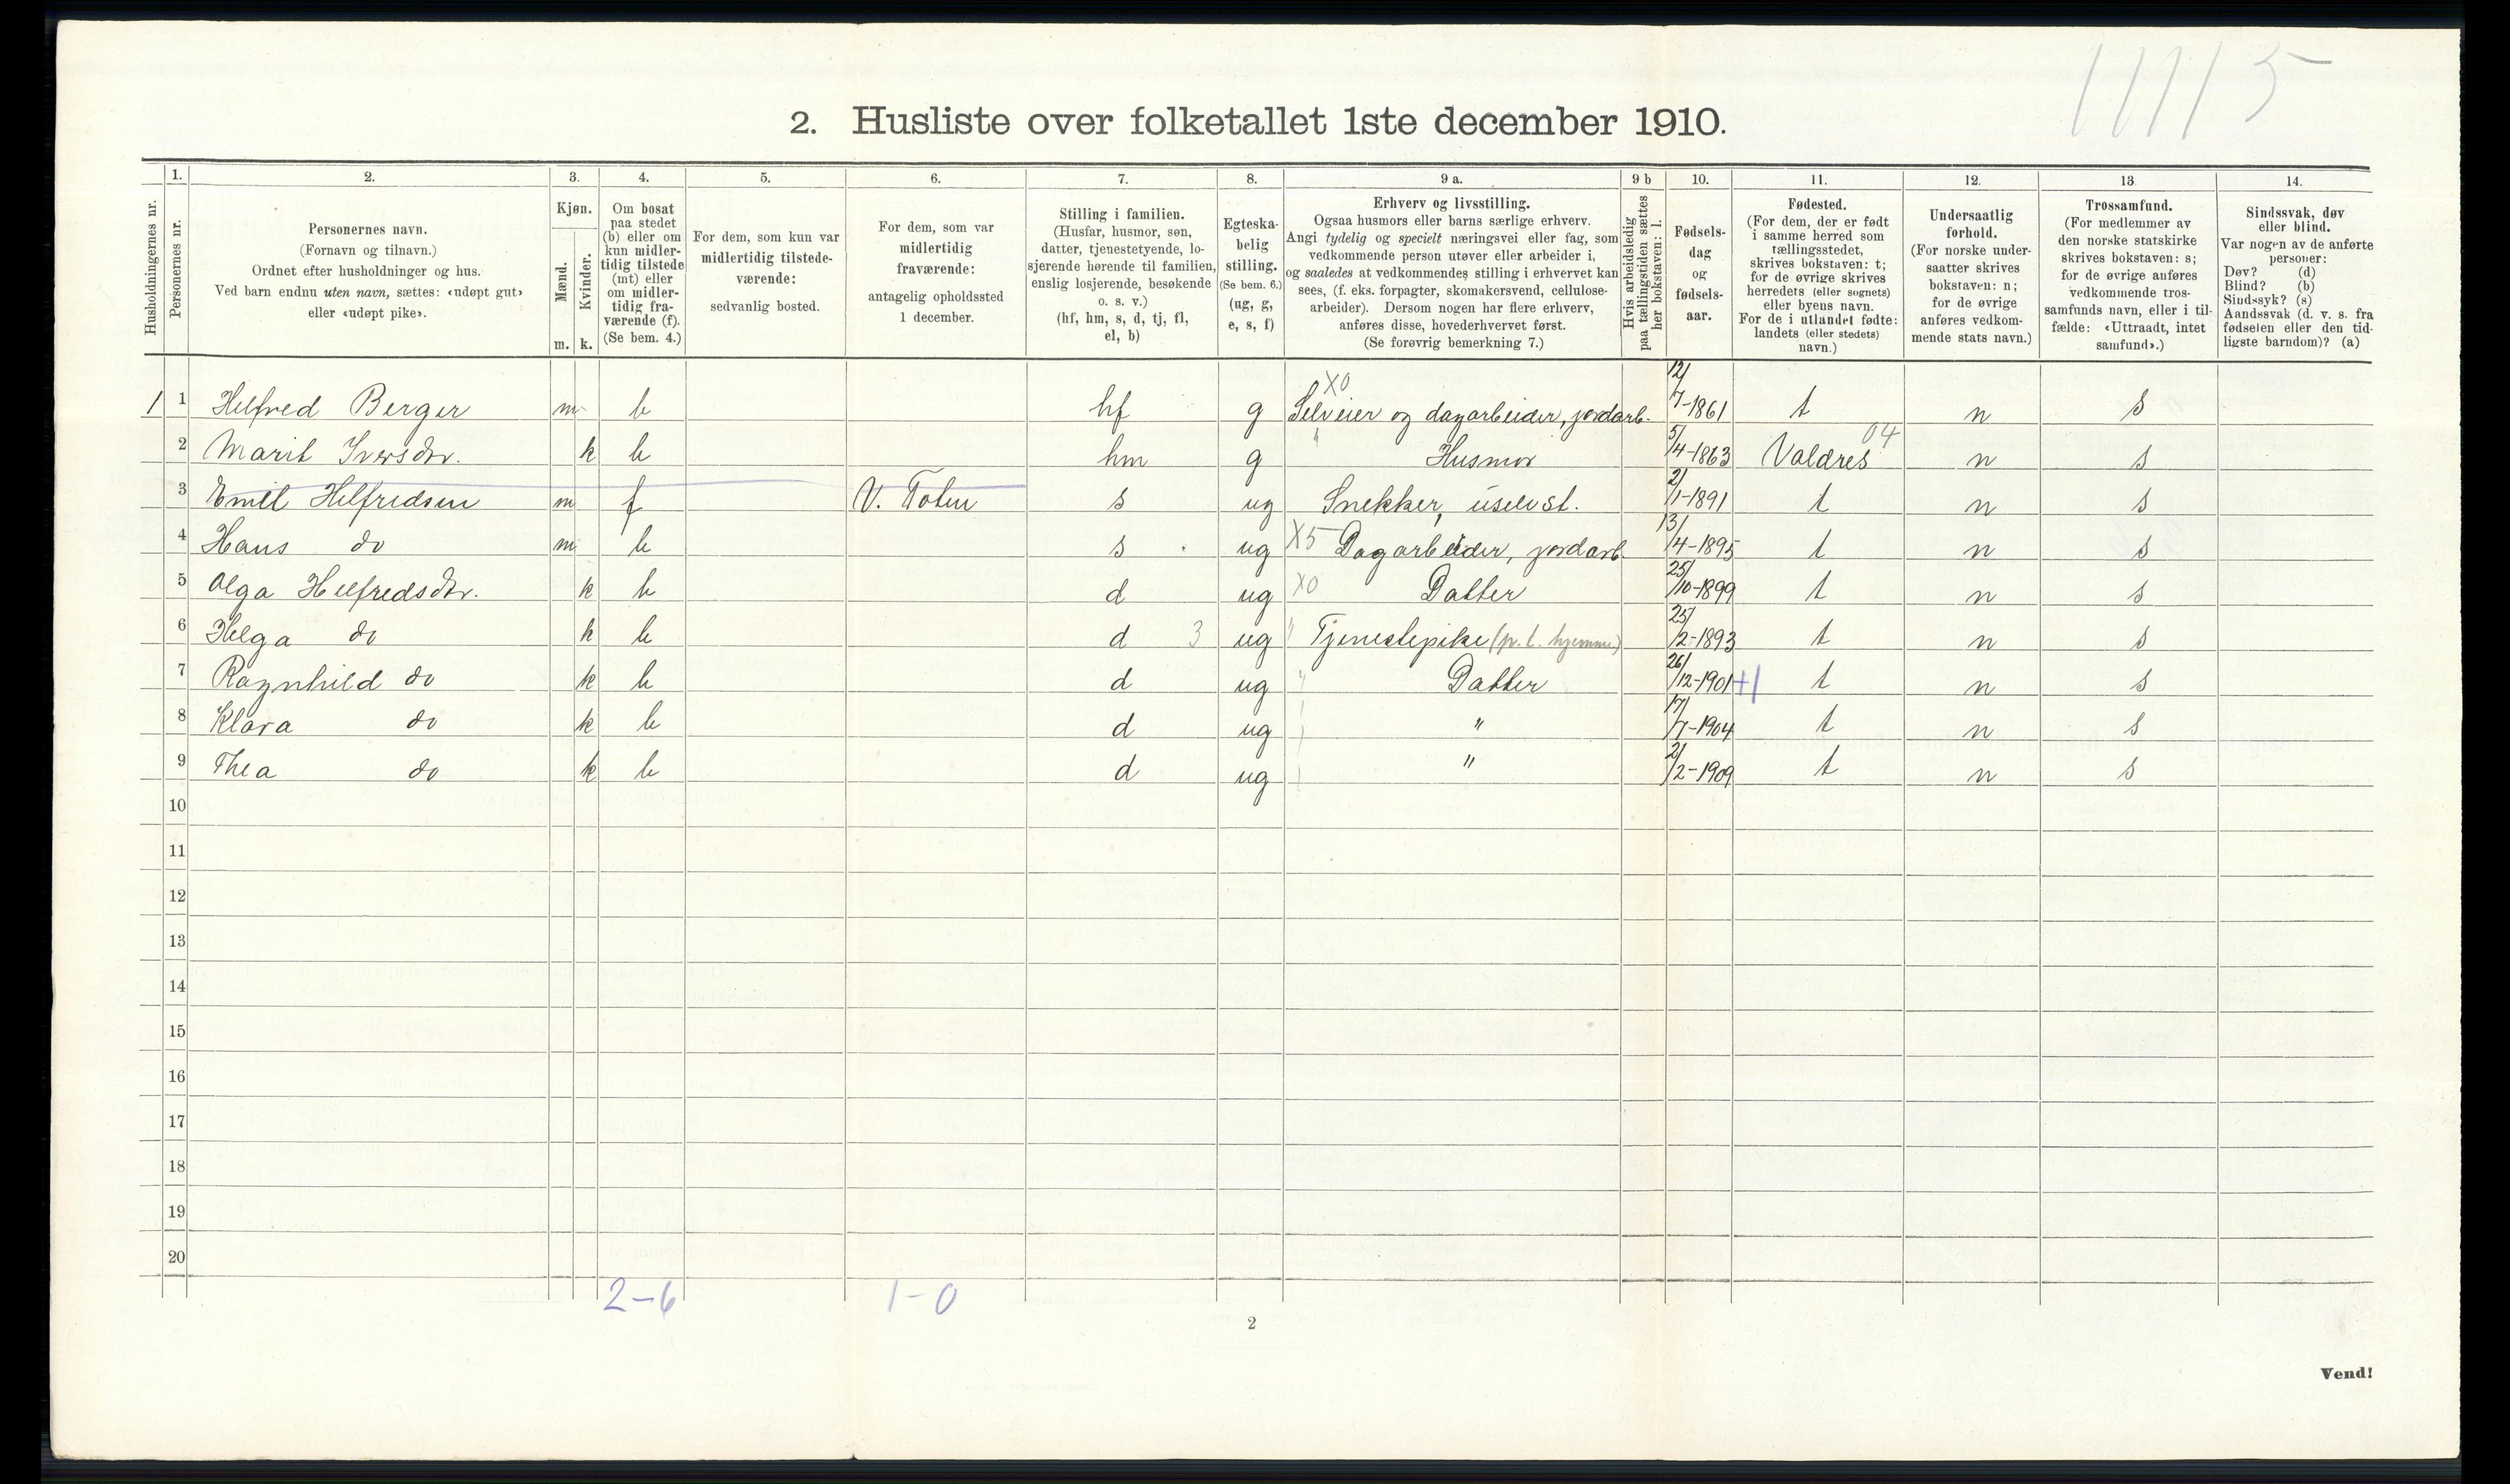 11115
2. Husliste over folketallet 1ste december 1910.
Husholdningernes nr.
1.
Personernes nr.
2.
Personernes navn.
(Fornavn og tilnavn.)
Ordnet efter husholdninger og hus.
Ved barn endnu uten navn, sættes: «udøpt gut»
eller «udøpt pike».
3.
Kjøn.
Mænd.
Kvinder.
m. k.
4.
Om bosat
paa stedet
(b) eller om
kun midler-
tidig tilstede
(mt) eller
om midler-
tidig fra-
værende (f).
(Se bem. 4.)
5.
For dem, som kun var
midlertidig tilstede-
værende:
sedvanlig bosted.
6.
For dem, som var
midlertidig
fraværende:
antagelig opholdssted
1 december.
7.
Stilling i familien.
(Husfar, husmor, søn,
datter, tjenestetyende, lo-
sjerende hørende til familien,
enslig losjerende, besøkende
o. s. v.)
(hf, hm, s, d, tj, fl,
el, b)
8.
Egteska-
belig
stilling.
(Se bem. 6.)
(ug, g,
e, s, f)
9 a.
Erhverv og livsstilling.
Ogsaa husmors eller barns særlige erhverv.
Angi tydelig og specielt næringsvei eller fag, som
vedkommende person utøver eller arbeider i,
og saaledes at vedkommendes stilling i erhvervet kan
sees, (f. eks. forpagter, skomakersvend, cellulose-
arbeider). Dersom nogen har flere erhverv,
anføres disse, hovederhvervet først.
(Se forøvrig bemerkning 7.)
9 b
Hvis arbeidsledig
paa tællingstiden sættes
her bokstaven: l.
10.
Fødsels-
dag
og
fødsels-
aar.
11.
Fødested.
(For dem, der er født
i samme herred som
tællingsstedet,
skrives bokstaven: t;
for de øvrige skrives
herredets (eller sognets)
eller byens navn.
For de i utlandet fødte:
landets (eller stedets)
navn.)
12.
Undersaatlig
forhold.
(For norske under-
saatter skrives
bokstaven: n;
for de øvrige
anføres vedkom-
mende stats navn.)
13
Trossamfund.
(For medlemmer av
den norske statskirke
skrives bokstaven: s;
for de øvrige anføres
vedkommende tros-
samfunds navn, eller i til-
fælde: «Uttraadt, intet
samfund».)
14.
Sindssvak, døv
eller blind.
Var nogen av de anførte
personer:
Døv? (d)
Blind? (b)
Sindssyk? (s)
Aandssvak (d. v. s. fra
fødselen eller den tid-
ligste barndom)? (a)
1 1 Helfred Berger m b hf g X0 Selveier og dagarbeider, jordarb. 12/7-1861 t n s
2 Marit Iversdtr. k b hm g " Husmor 5/4-1863 Valdres 04 n s
3 Emil Helfredsen m f V. Toten s ug Snekker, uselvst. 2/1-1891 t n s
4 Hans do m b s ug X5 Dagarbeider, jordarb. 13/4-1895 t n s
5 Olga Helfredsdtr. k b d ug X0 Datter 25/10-1899 t n s
6 Helga do k b d 3 ug " Tjenestepike (p. t. hjemme) 25/2-1893 t n s
7 Ragnhild do k b d ug " Datter 26/12-1901 +1 t n s
8 Klara do k b d ug " 17/7-1904 t n s
9 Thea do k b d ug " 2/2-1909 t n s
10
11
12
13
14
15
16
17
18
19
20
2-6 1-0
2
Vend!